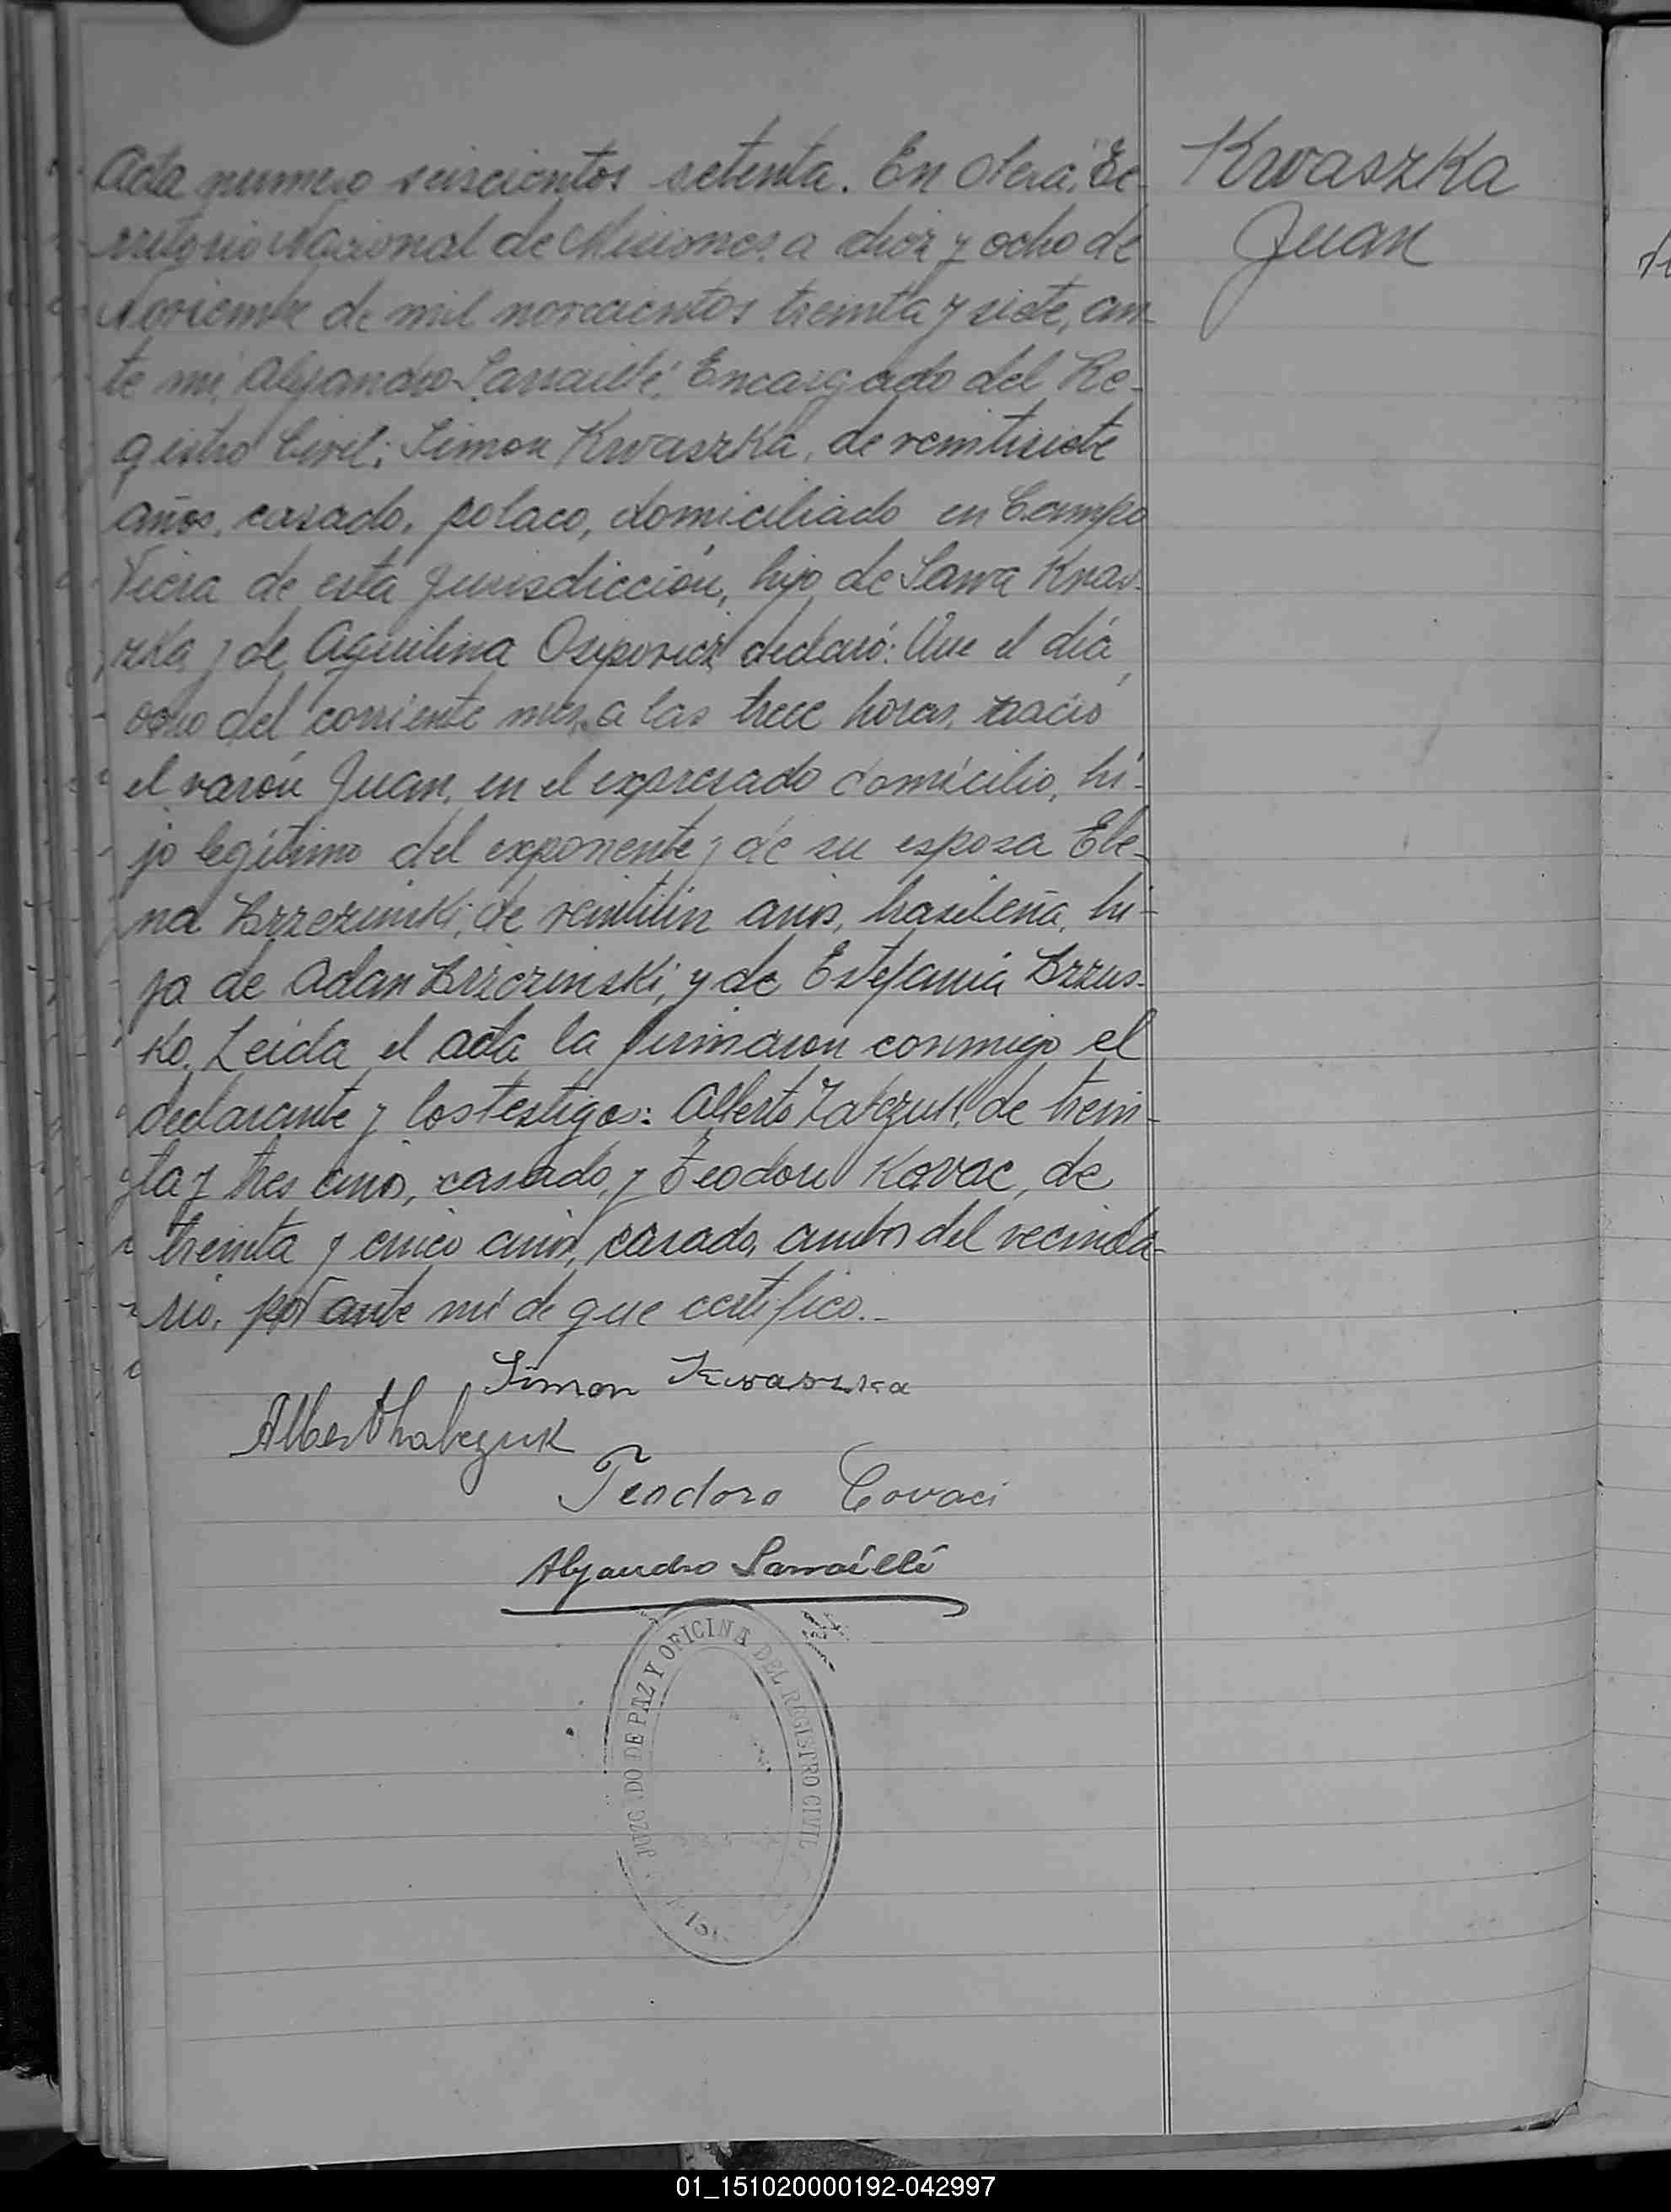 Kwaszka
Juan
Acta numero seiscientos setenta. En Oberá, Te-
rritorio Nacional de Misiones a diez y ocho de
Noviembre de mil novecientos treinta y siete, an-
te mi, Alejandro Sarraillé, Encargado del Re-
gistro Civil: Simon Kwaszka, de veintisiete
años, casado, polaco, domiciliado en Campo
Viera de esta jurisdicción, hijo de Sawa Kwas-
zka y de Aquilina Osipovicz declaró: Que el día
ocho del corriente mes, a las trece horas, nació
el varón Juan, en el expresado domicilio, hi-
jo legítimo del exponente y de su esposa Ele-
na Brzezinski, de veintiún años, brasileña, hi-
ja de Adan Brzezinski, y de Estefania Brzus-
ko. Leida el acta la firmaron conmigo el
declarante y los testigos: Alberto de trein-
ta y tres años, casado, y Teodoro Kovac, de
treinta y cinco años, casado, ambos del vecinda-
rio, por ante mí de que certifico.-
Simon Kwaszka
Teodoro Covaci
Alejandro Sarraillé
JUZG DO DE PAZ Y OFICINA DEL REGISTRO CIVIL
01_151020000192-042997